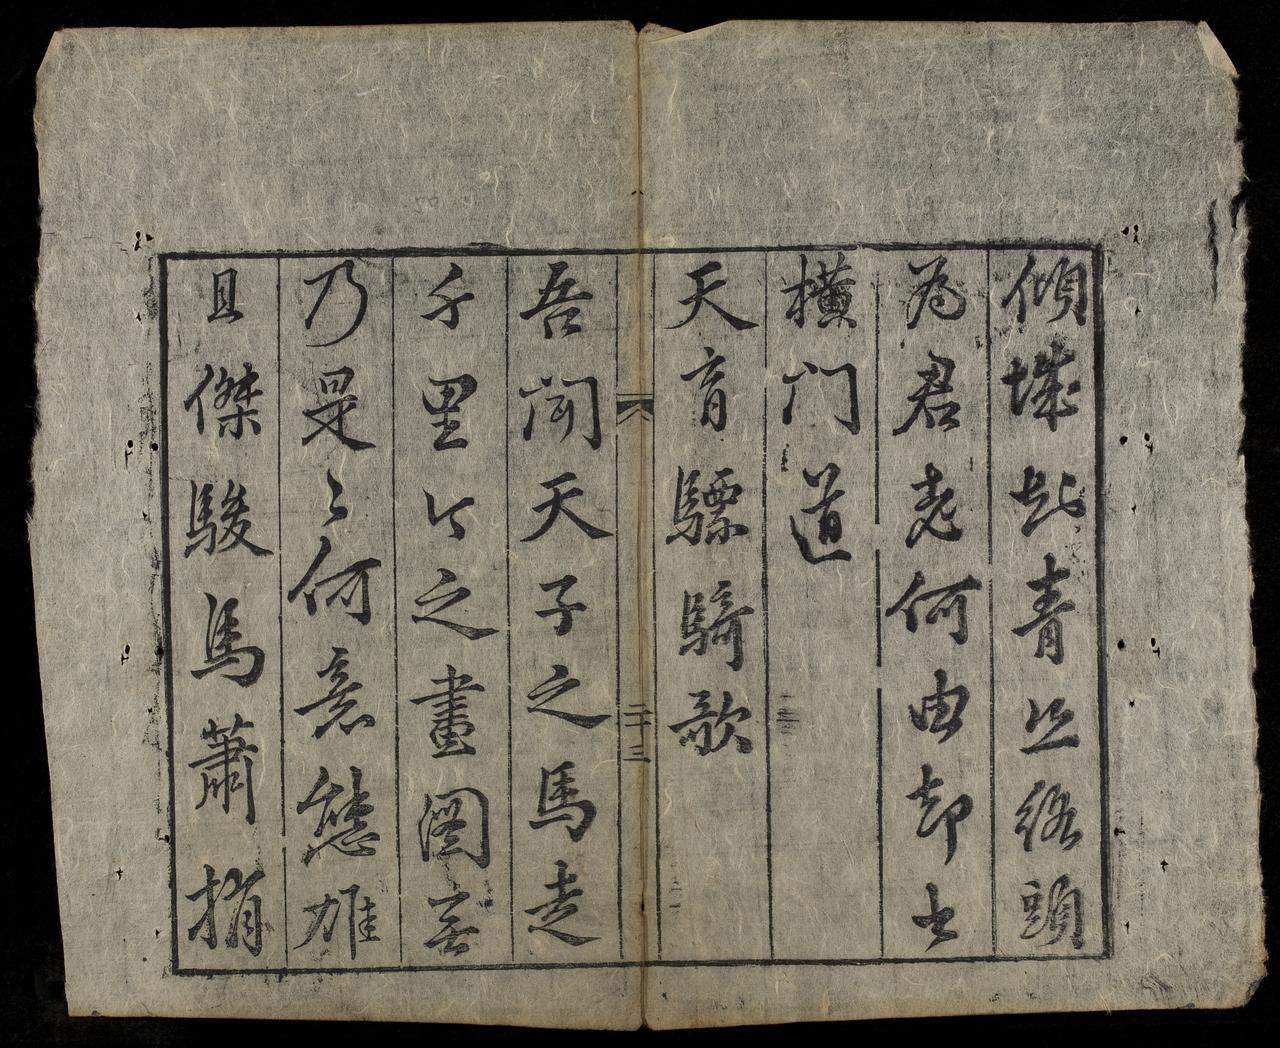 傾城知青絲絡頭
為君老何由却出
橫門道
天育驃騎歌
二十三
吾聞天子之馬走
千里今之畫圖無
乃是〻何意態雄
且傑駿馬蕭捎